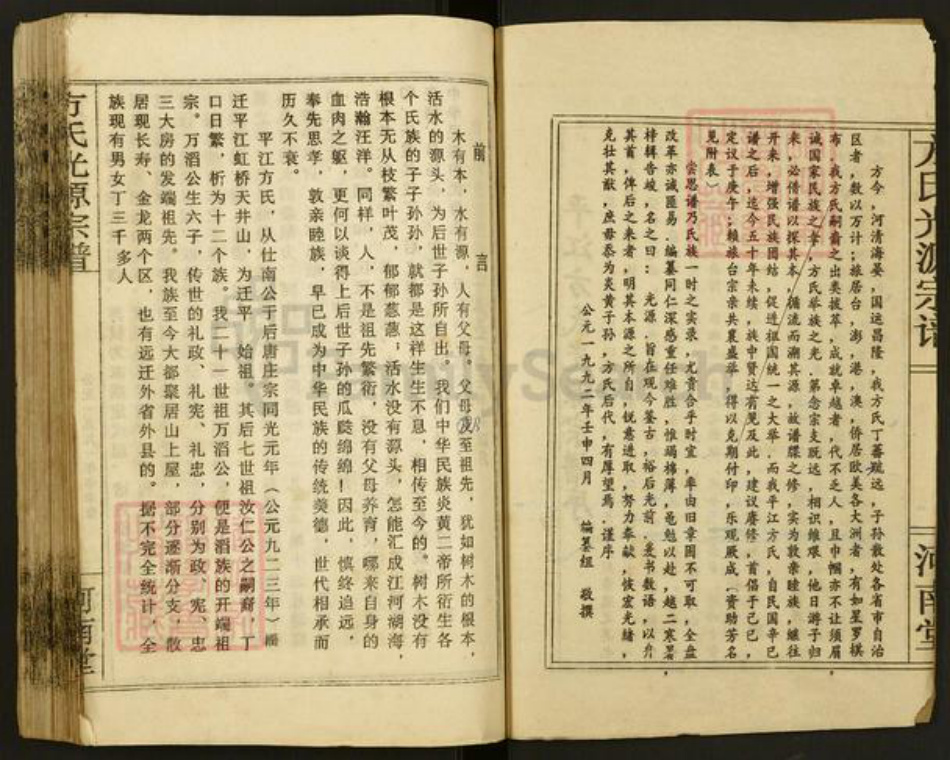 方氏光源宗谱
河南堂
方今,河清海晏,国运昌隆,我方氏丁蕃瓞远,子孙散处各省市自治
区者,数以万计;旅居台,澎,港,澳,侨居欧美各大洲者,有如星罗棋
布,我方氏嗣裔之出类拔萃,成就卓越者,代不乏人,且巾帼亦不让须眉,
诚国家民族之幸,方氏举族之光.第念宗支既远,相识维艰,他日游子归
来,必借谱以探其本,循流而溯其源,故谱牒之修,实为敦亲睦族,继往
开来,增强民族团结,促进祖国统一之大举.而我平江方氏,自民国辛巳
谱之后,迄今五十年未续,族中贤达有见及此,建议赓修,首倡于己巳,
定议于庚午;赖旅台宗亲共襄盛举,得以克期付印,乐观厥成.(资助芳名
见附表)
尝思谱乃氏族一时之实录,尤贵合乎时宜,率由旧章固不可取,全盘
改革亦诚匪易.编纂同仁深感重任难胜,惟竭棉薄,黾勉以赴,越二寒暑,
梓辑告峻,名之曰:光源.旨在观今鉴古,裕后光前.爰书数语,以弁
其首,俾后之来者,明其本源之所自,锐意进取,努力奉献,恢宏光绪,
克壮其猷,庶毋忝为炎黄子孙,方氏后代,有厚望焉.谨序
公元一九九二年壬申四月 编纂组 敬撰
前言
木有本,水有源,人有父母。父母及至祖先,犹如树木的根本,
活水的源头,为后世子孙所自出。我们中华民族炎黄二帝所衍生各
个氏族的子子孙孙,就都是这样生生不息,相传至今的。树木没有
根本无从枝繁叶茂,郁郁葱葱;活水没有源头,怎能汇成江河湖海,
浩瀚汪洋。同样,人,不是祖先繁衍,没有父母养育,哪来自身的
血肉之躯,更何以谈得上后世子孙的瓜瓞绵绵!因此,慎终追远,
奉先思孝,敦亲睦族,早已成为中华民族的传统美德,世代相承而
历久不衰。
平江方氏,从仕南公于后唐庄宗同光元年(公元九二三年)播
迁平江虹桥天井山,为迁平一始祖。其后七世祖汝仁公之嗣裔,丁
口日繁,析为十二个族。我二十一世祖万滔公,便是滔族的开端祖
宗。万滔公生六子,传世的礼政、礼宪、礼忠,分别为政、宪、忠
三大房的发端祖先。我族至今大都聚居山上屋,部分逐渐分支,散
居现长寿、金龙两个区,也有远迁外省外县的。据不完全统计,全
族现有男女丁三千多人
方氏光源宗谱
河南堂